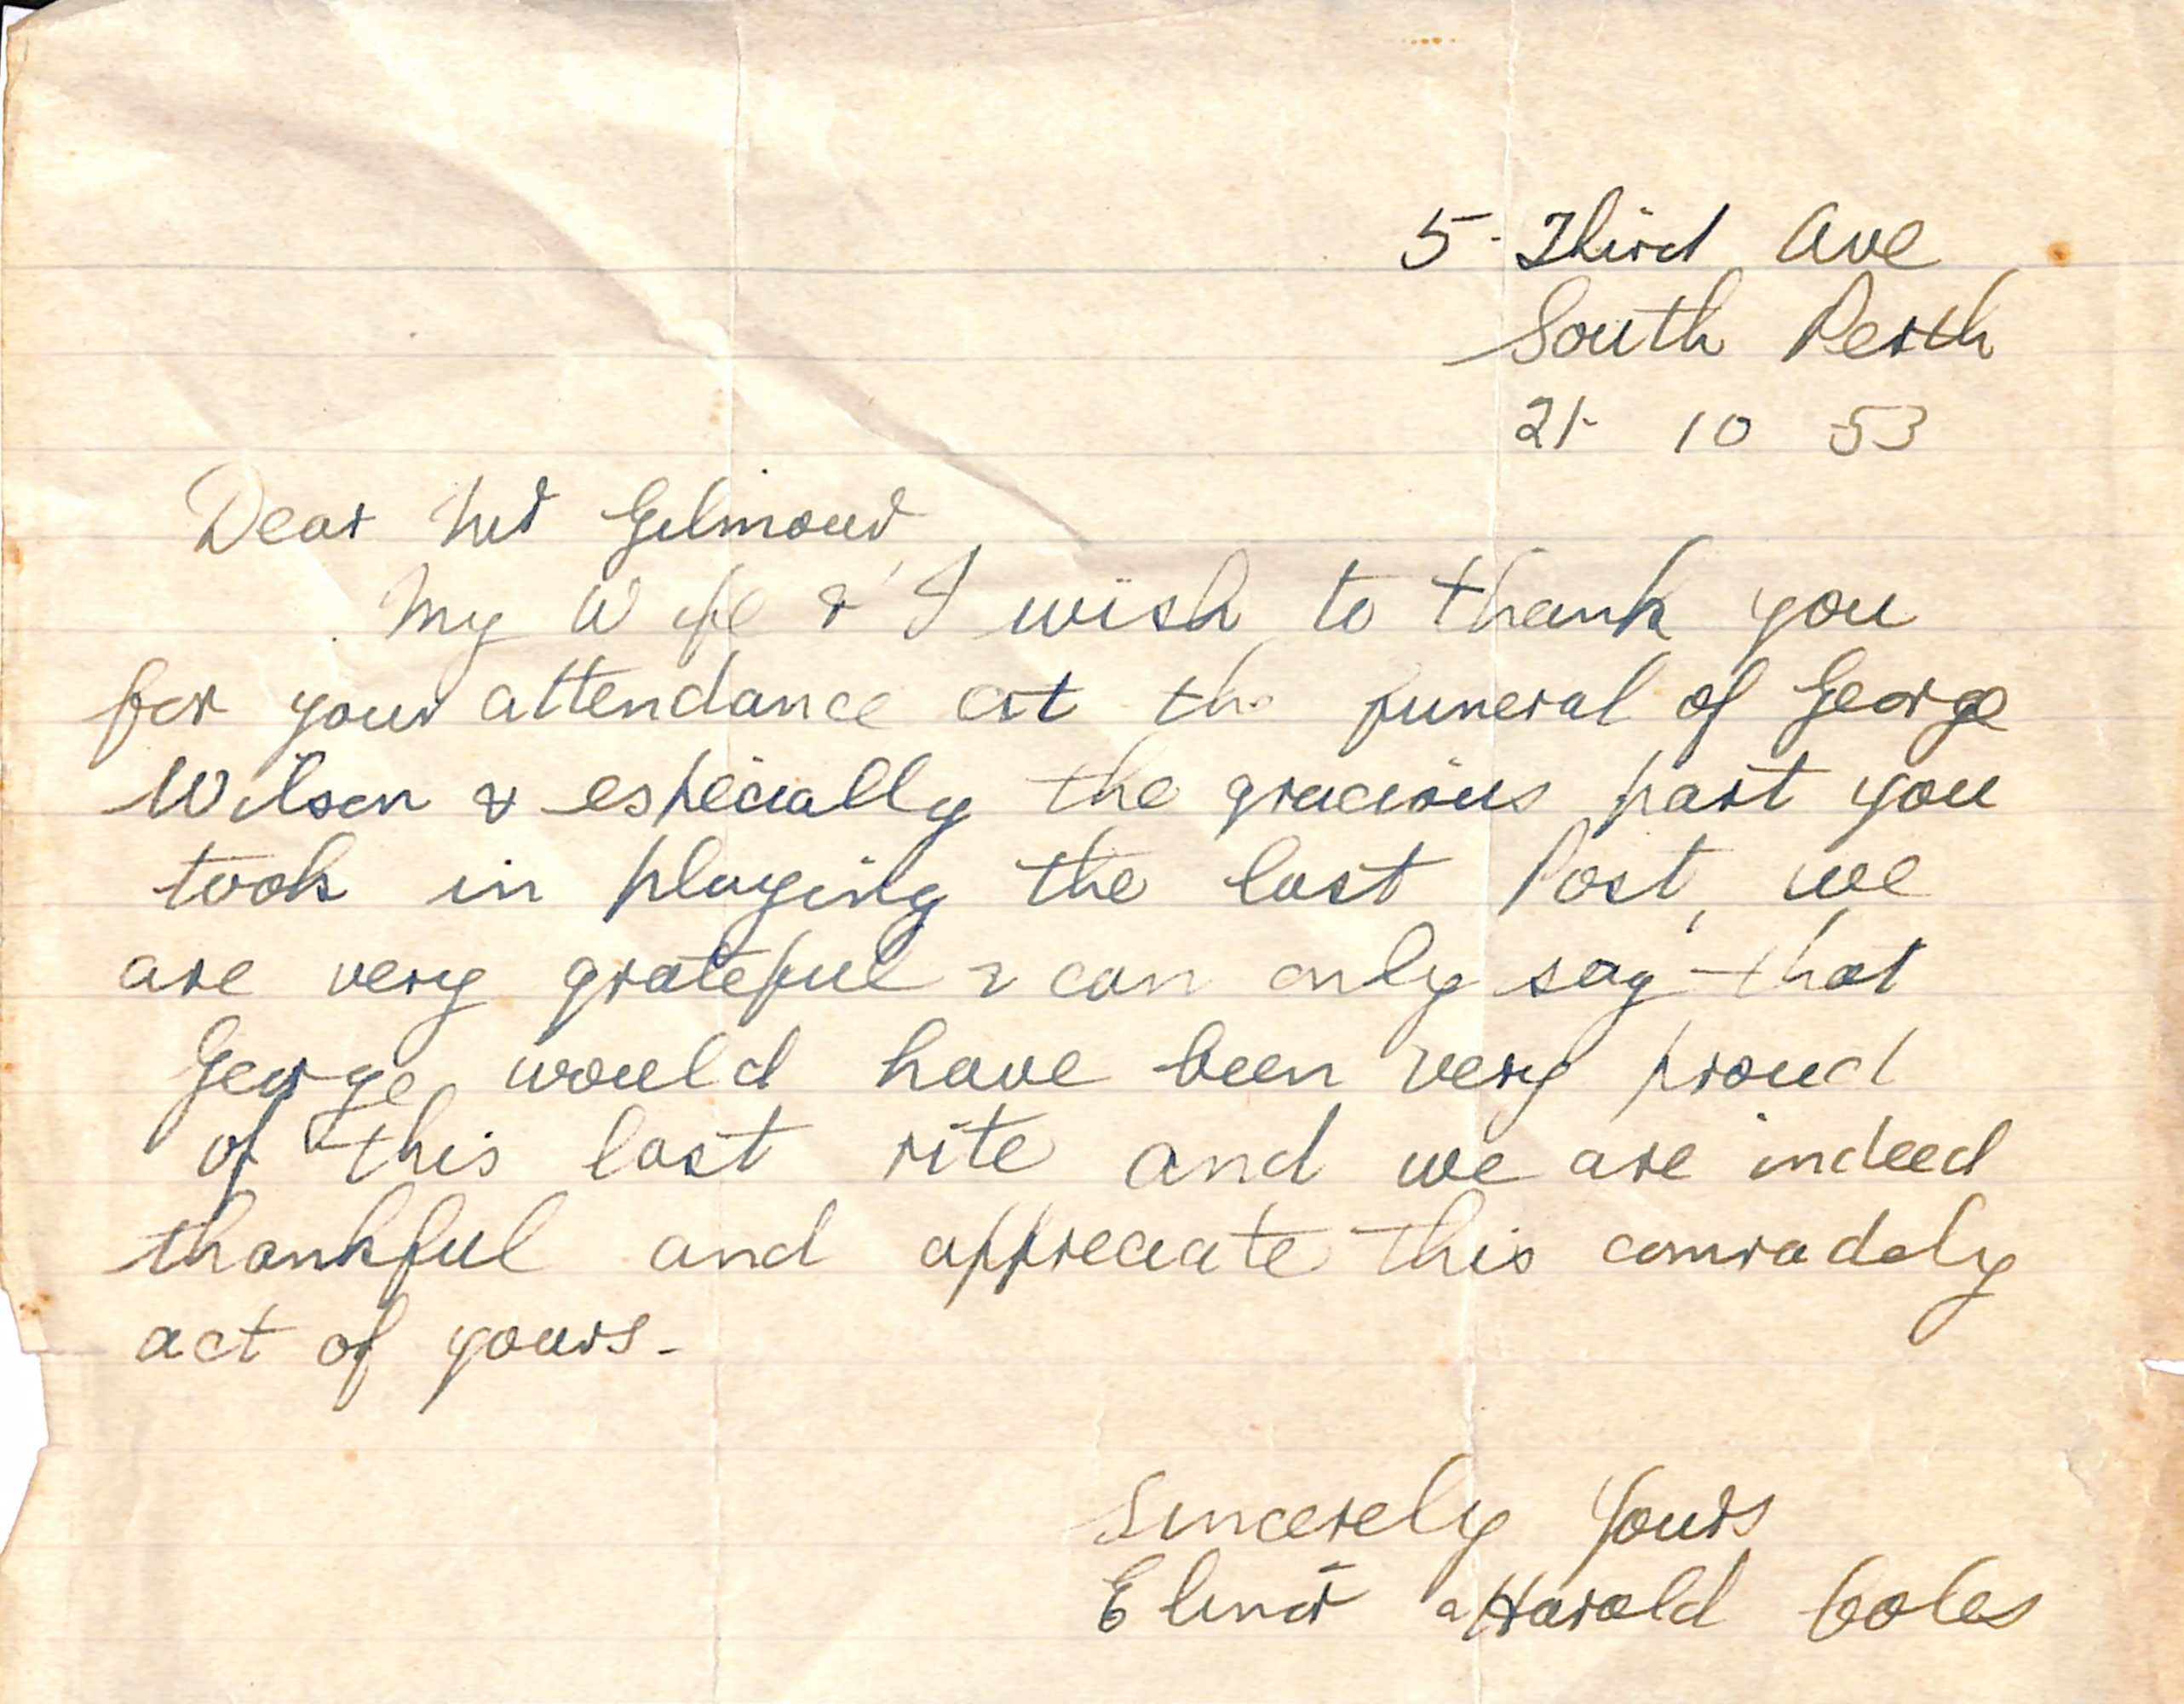 5. Third Ave
South Perth
21- 10 53
Dear Mr Gilmour,
My Wife & I wish to thank you
for your attendance at the funeral of George
Wilson & especially the gracious part you
took in playing the last Post, we
are very grateful & can only say that
George would have been very proud
of this last rite and we are indeed
thankful and appreciate this comradely
act of yours.
Sincerely Yours
Elinor & Harold Coles